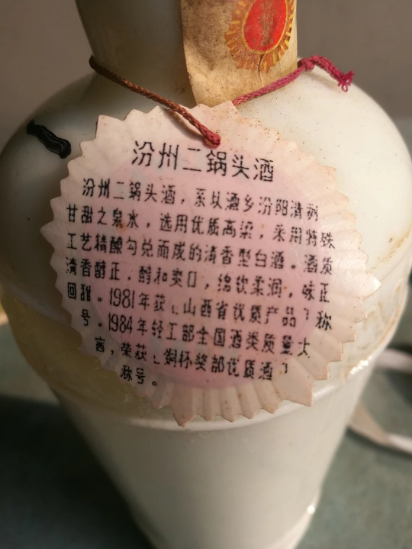 汾州二锅头酒
汾州二锅头酒，系以酒乡汾阳清冽
甘甜之泉水，选用优质高梁，采用特殊
工艺精酿勾兑而成的清香型白酒。酒质
清香醇正，醇和爽口，绵软柔润，味正
回甜。1981年获「山西省优质产品」称
号。1984年轻工部全国酒类质量大
赛，荣获「铜杯奖部优质酒」
称号。